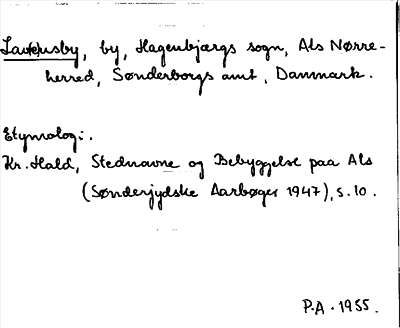 Lav(e)nsby, by, Hagenbjærgs sogn, Als Nørre-
herred, Sønderborgs amt, Danmark.
Etymologi:
Kr. Hald, Stednavne og Bebyggelse paa Als
(Sønderjydske Aarbøger 1947), s. 10.
P.A. 1955.